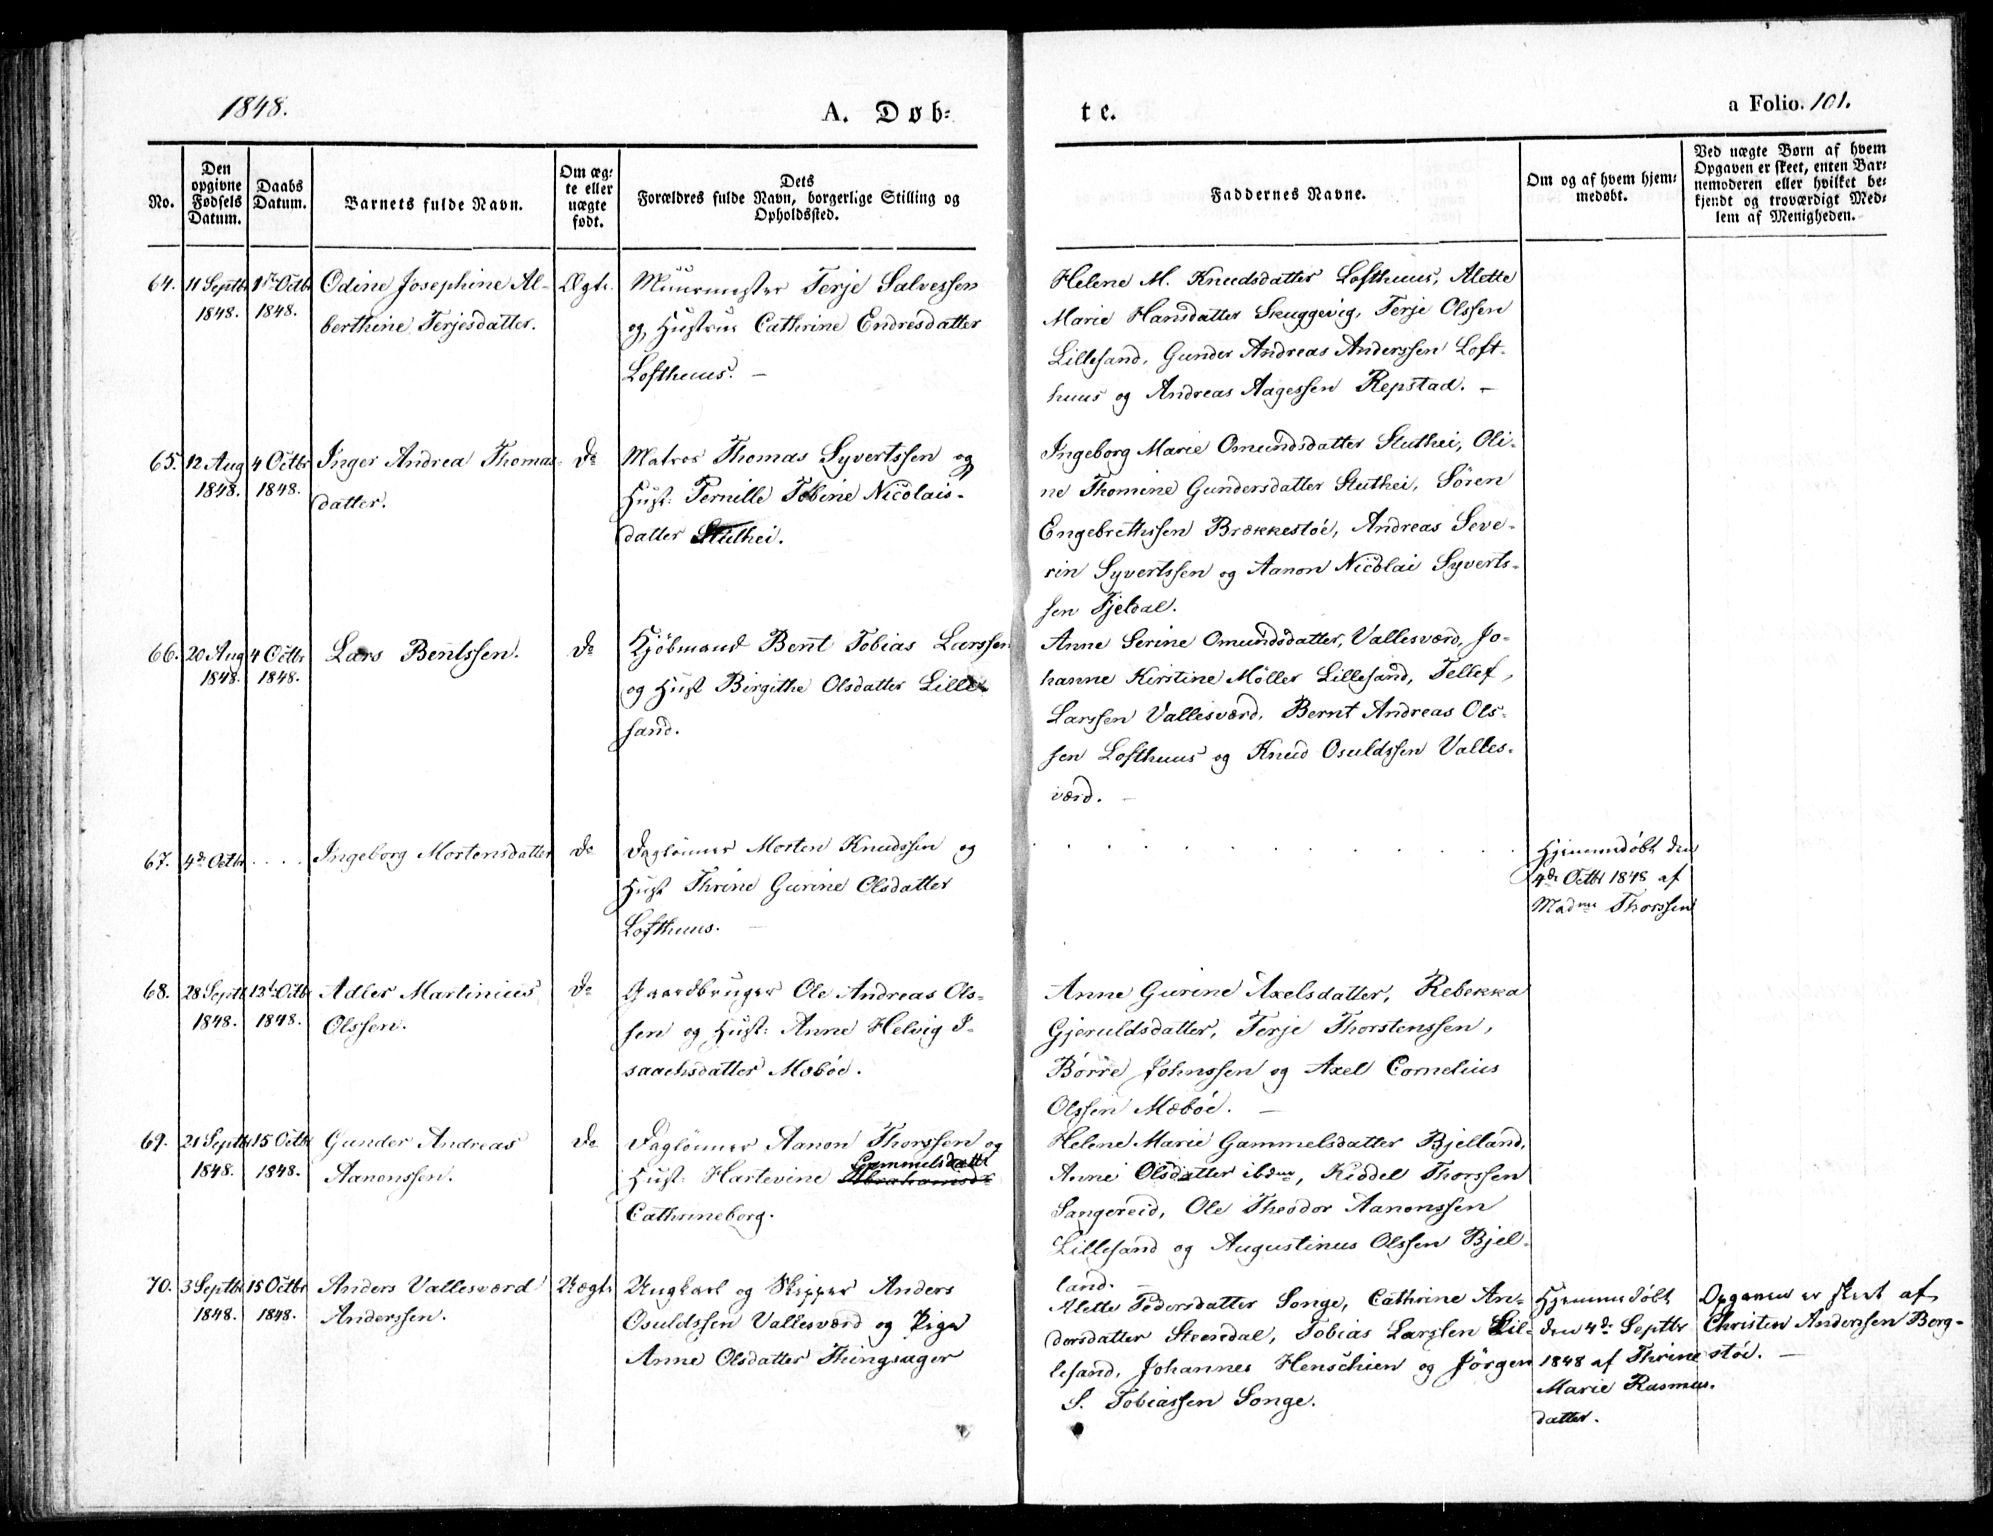 1848.
A. Døb-
te.
a Folio. 101.
No.
Den
opgivne
Fødsels
Datum.
Daabs
Datum.
Barnets fulde Navn.
Om æg-
te eller
uægte
født.
Dets
Forældres fulde Navn, borgerlige Stilling og
Opholdssted.
Faddernes Navne.
Om og af hvem hjem-
medøbt.
Ved uægte Børn af hvem
Opgaven er skeet, enten Bar-
nemoderen eller hvilket be-
kjendt og troværdigt Med-
lem af Menigheden.
64.
11 Septbr
1848.
1ste Octbr
1848.
Odine Josephine Al-
berthine Terjesdatter.
Ægte.
Muurmester Terje Salvessen
og Hustrue Cathrine Endresdatter
Lofthuus. —
Helene M. Knudsdatter Lofthuus, Alette
Marie Hansdatter Skuggevig, Terje Olssen
Lillesand, Gunder Andreas Anderssen Loft-
huus og Andreas Aagessen Repstad. —
65.
12 Aug
1848.
4 Octbr
1848.
Inger Andrea Thomas-
datter.
Do
Matros Thomas Syvertssen og
Hust: Pernille Tobine Nicolais-
datter Stuthei.
Ingeborg Marie Omundsdatter Stuthei, Oli-
ne Thomine Gundersdatter Stuthei, Sören
Engebrethssen Brækkestöe, Andreas Seve-
rin Syvertssen og Aanon Nicolai Syverts-
sen Fjeldal.
66.
20 Aug
1848.
4 Octbr
1848.
Lars Bentssen.
Do
Kjöbmand Bent Tobias Larssen
og Hust Birgithe Olsdatter Lille-
sand.
Anne Serine Omundsdatter, Vallesværd, Jo-
hanne Kirstine Möller Lillesand, Tellef
Larssen Vallesværd, Bernt Andreas Ols-
sen Lofthuus og Knud Osuldssen Valles-
værd. —
67.
4de Octbr
. . . .
Ingeborg Mortensdatter
Do
Daglönner Morten Knudssen og
Hust Thrine Gurine Olsdatter
Lofthuus. —
Hjemmedöbt den
4de Octbr 1848 af
Madme Thorssen
68.
28 Septbr
1848.
13de Octbr
1848.
Adler Martinius
Olssen.
Do
Gaardbruger Ole Andreas Ols-
sen og Hust: Anne Helvig I-
saachsdatter Mæböe.
Anne Gurine Axelsdatter, Rebekka
Gjeruldsdatter, Terje Thorstenssen,
Börre Johnssen og Axel Cornelius
Olssen Mæböe. —
69.
21 Septbr
1848.
15 Octbr
1848.
Gunder Andreas
Aanonssen.
Do
Daglönner Aanon Thorssen og
Gammelsdattr
Hust: Hartevine Abrahamsdr
Cathrineborg.
Helene Marie Gammelsdatter Bjelland,
Anne Olsdatter ibdm, Kiddel Thorssen
Sangereid, Ole Theodor Aanonssen
Lillesand og Augustinus Olssen Bjel-
land.
70.
3 Septbr
1848.
15 Octbr
1848.
Anders Vallesværd
Anderssen.
Uægte
Ungkarl og Skipper Anders
Osuldssen Vallesværd og Pige
Anne Olsdatter Thingsager
Alette Pedersdatter Songe, Cathrine An-
dersdatter Steendal, Tobias Larssen Lil-
lesand, Johannes Henschien og Jörgen
S. Tobiassen Songe.
Hjemmedöbt
den 4de Septbr
1848 af Thrine
Marie Rasmus-
datter.
Opgaven er skeet af
Christen Anderssen Berg-
stöe. —